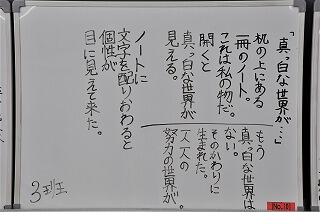 「真っ白な世界が…」
机の上にある
一冊のノート。
これは私の物だ。
開くと
真っ白な世界が
見える。
ノートに
文字を配りおわると
個性が
目に見えて来た。
もう
真っ白な世界は
ない。
そのかわりに
生まれた。
一人一人の
努力の世界が。
3班
No.10